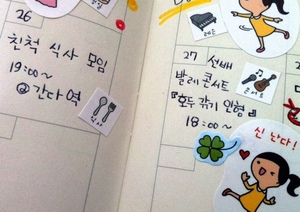 26
친척 식사 모임
19:00~
@간다역
식사
27 선배
발레 콘서트
『호두 깎기 인형』
18:00~
신 난다!